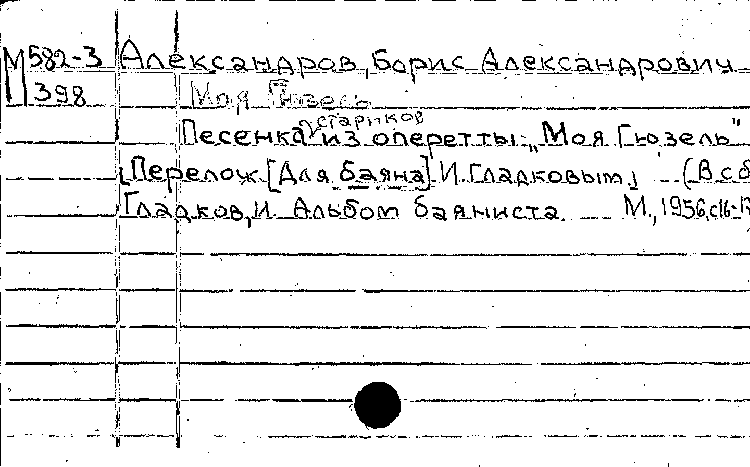 М 582-3 Александров, Борис Александрович
398 Моя Гюзель
стариков
Песенка из оперетты: „Моя Гюзель"
[Перелож. [Для баяна] И. Гладковым] (В сб
Гладков, И. Альбом баяниста. М., 1956, с16-17